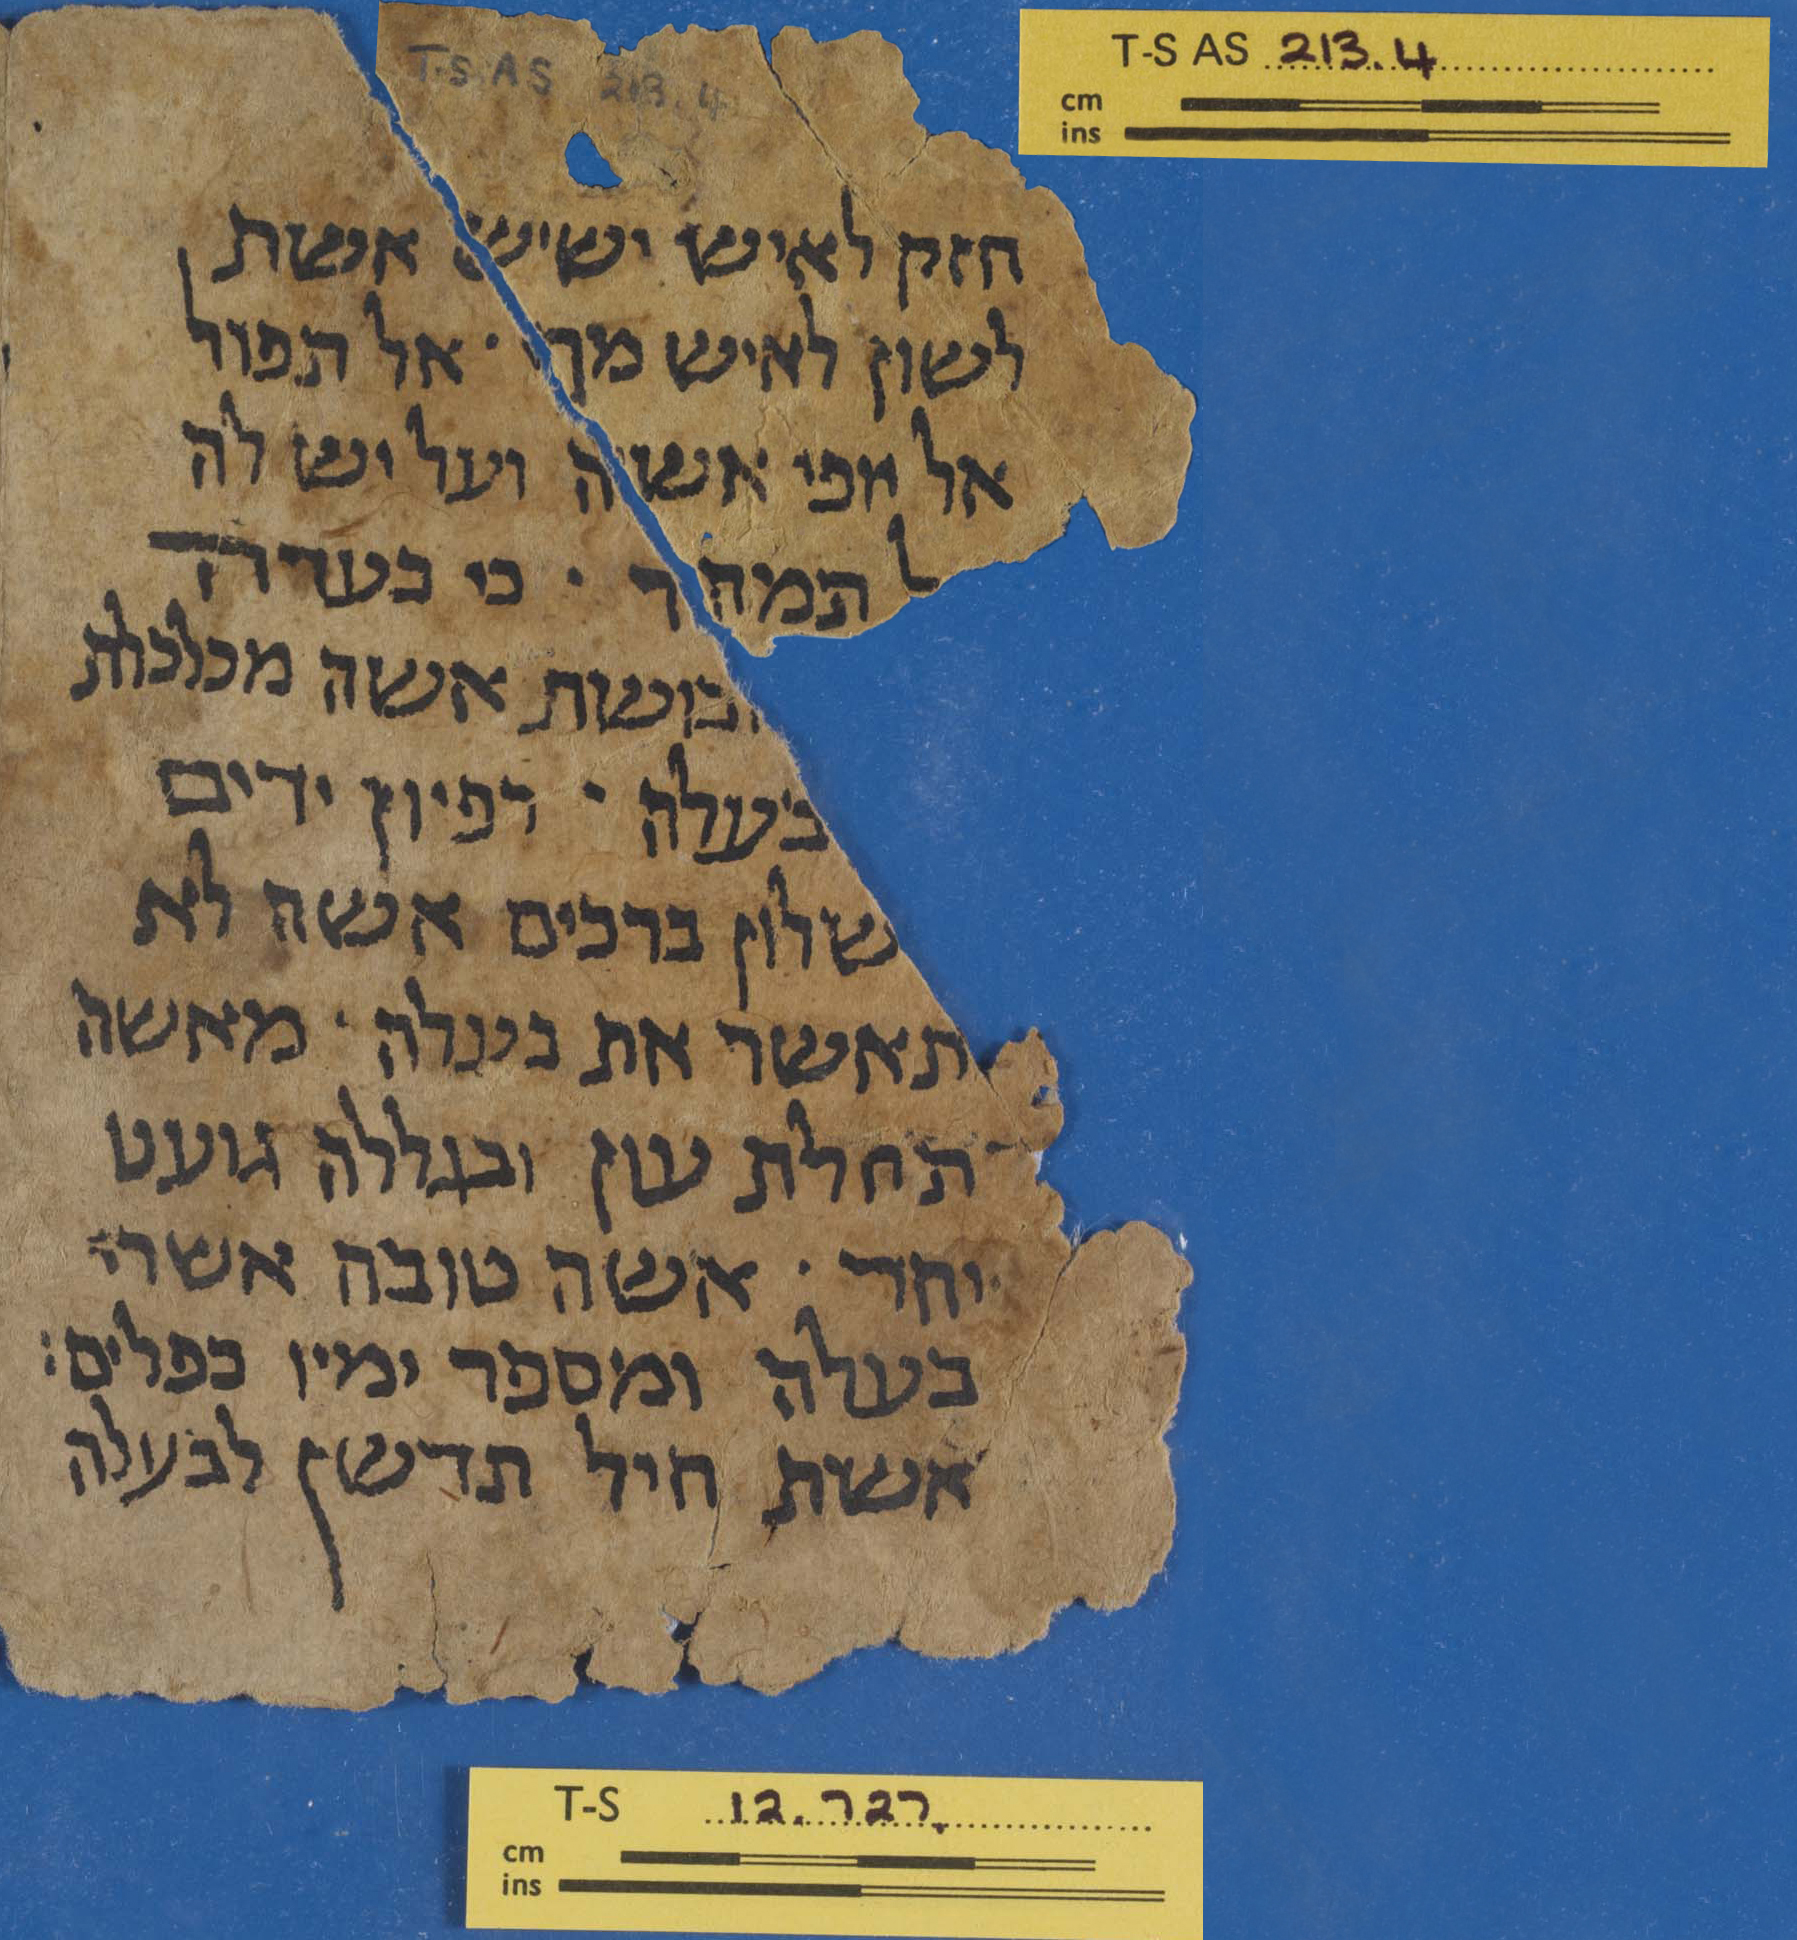 T-S AS 213.4
cm
ins
T-S AS 213.4
חזק לאיש ישיש אשת
לשון לאיש מך · אל תפול
אל יופי אשה ועל יש לה
ל תמהר · כי בערה
ובושת אשה מכלכלת
בעלה · רפיון ידים
שלון ברכים אשה לא
תאשר את בעלה · מאשה
תחלת עון ובגללה גוענו
יחד · אשה טובה אשרי
בעלה ומספר ימיו כפלים׃
אשת חיל תדשן לבעלה
T-S 12.727.
cm
ins